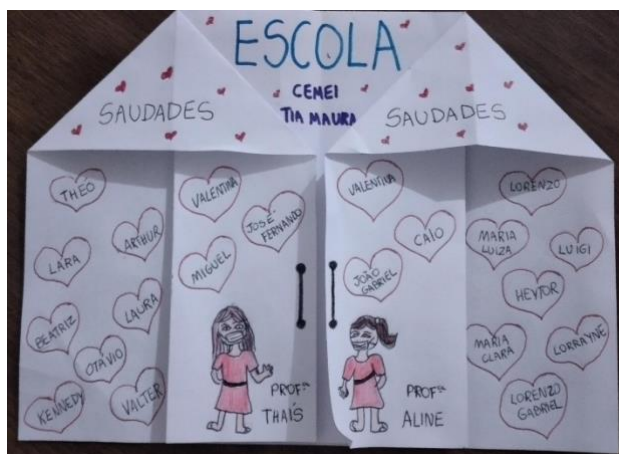 ESCOLA
CEMEI
TIA MAURA
SAUDADES
SAUDADES
THEO
ARTHUR
LARA
LAURA
BEATRIZ
OTÁVIO
KENNEDY
VALTER
VALENTINA
JOSÉ
FERNANDO
MIGUEL
PROFªª
THAÍS
VALENTINA
CAIO
JOÃO
GABRIEL
PROFªª
ALINE
LORENZO
MARIA
LUIZA
LUIGI
HEYTOR
MARIA
CLARA
LORRAYNE
LORENZO
GABRIEL